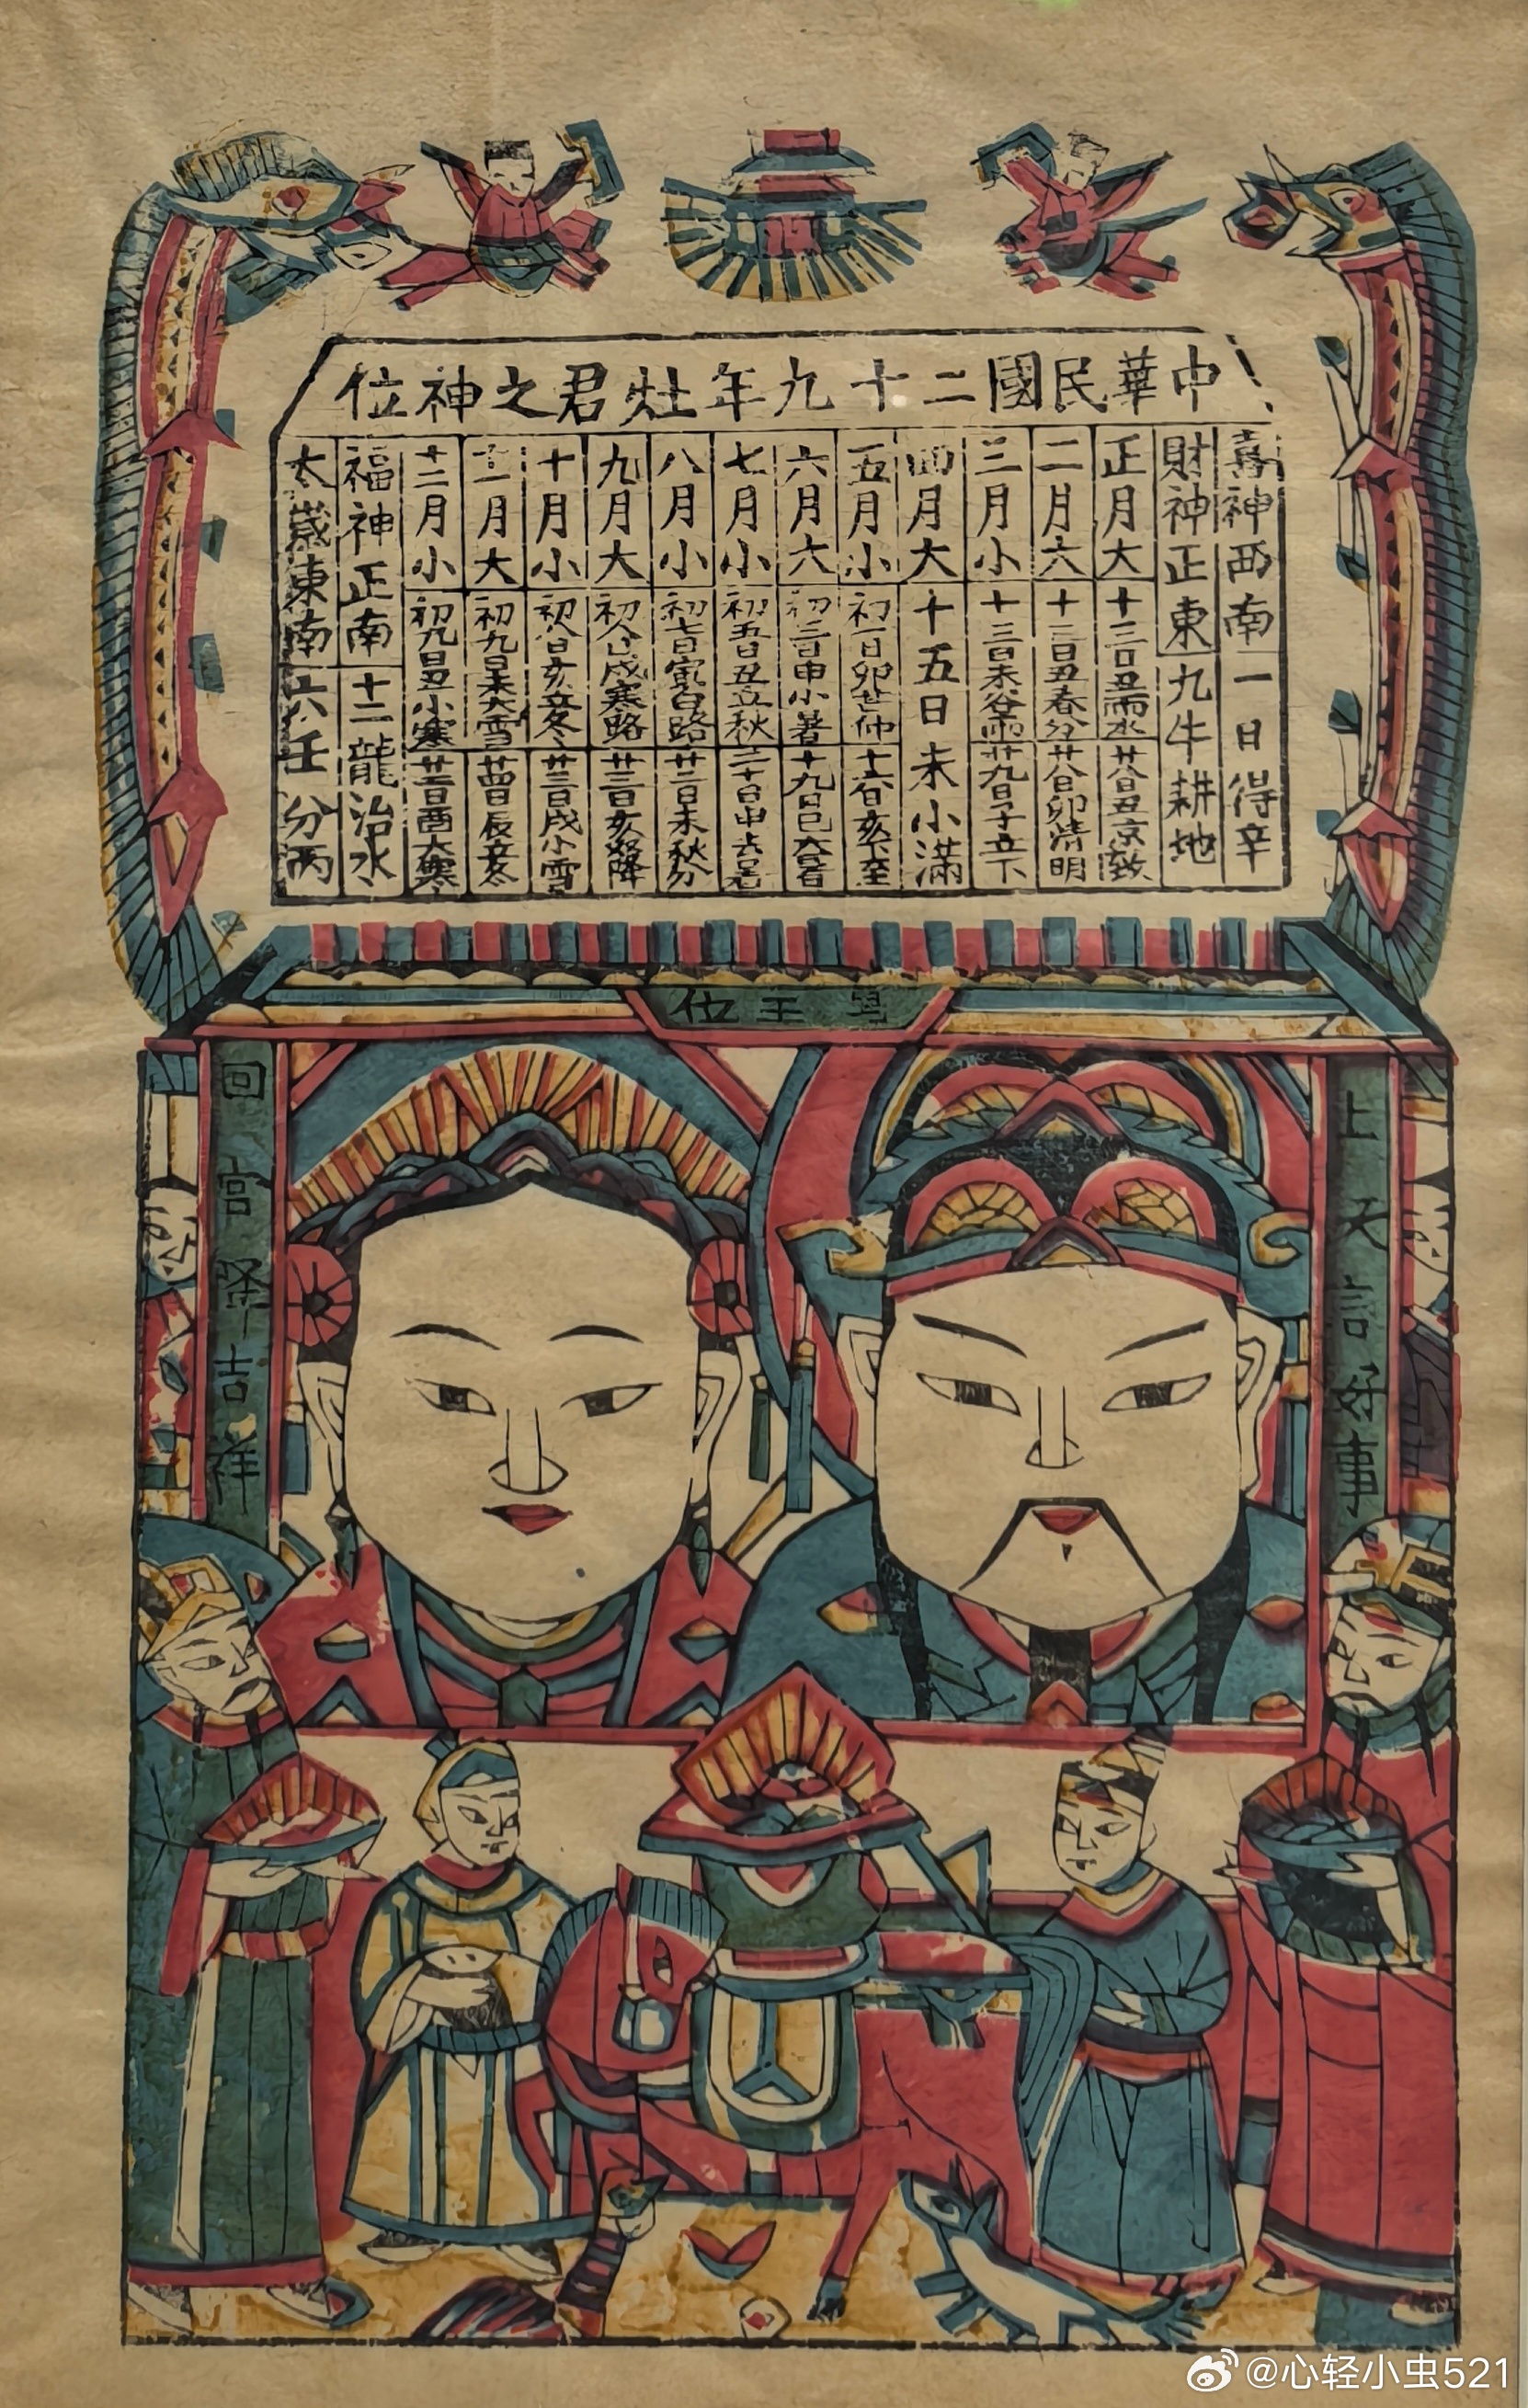 中華民國二十九年灶君之神位
喜神西南一日得辛
財神正東九牛耕地
正月大十三日丑雨水廿八日丑京致
二月六十三日丑春分廿八日卯清明
三月小十三日未谷雨廿九日子立下
四月大十五日未小滿
五月小初一日卯芒仲十六日亥下至
六月六初三日申小暑十九日巳大暑
七月小初五日丑立秋二十日申去暑
八月小初七日寅白路廿二日未秋分
九月大初八日戌寒路廿三日亥降
十月小初八日亥立冬廿三日戌小雪
十一月大初九日未大雪廿四日辰冬
十二月小初九日丑小寒廿三日酉大寒
福神正南十二龍治水
太歲東南六壬分丙
皂王位
上天言好事
回宮降吉祥
@心轻小虫521